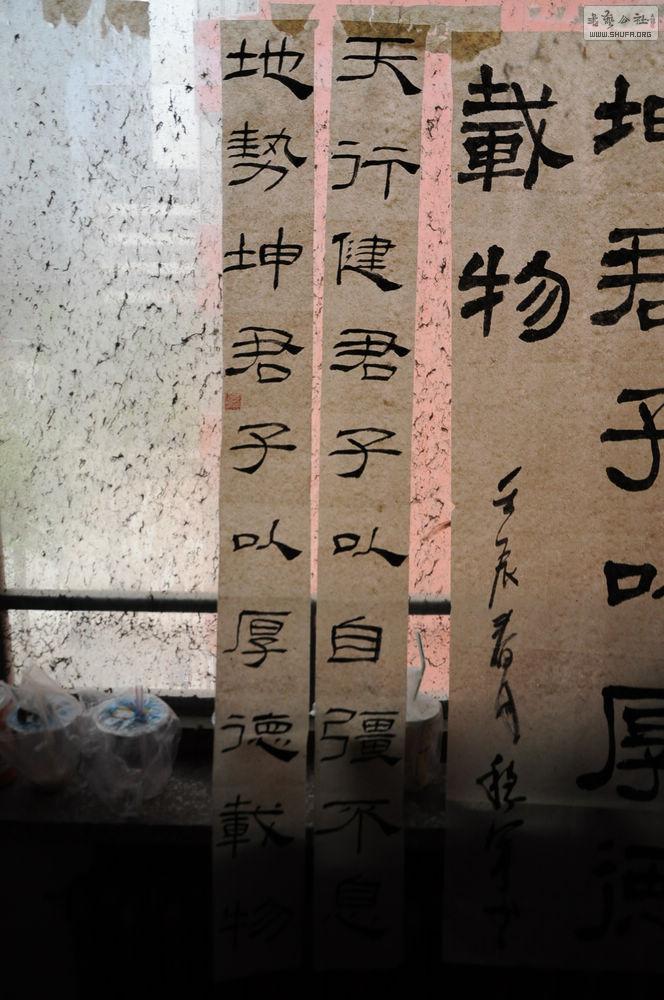 坤君子以厚德
載物
壬辰春月
天行健君子以自彊不息
地勢坤君子以厚德載物
書藝公社
WWW.SHUFA.ORG